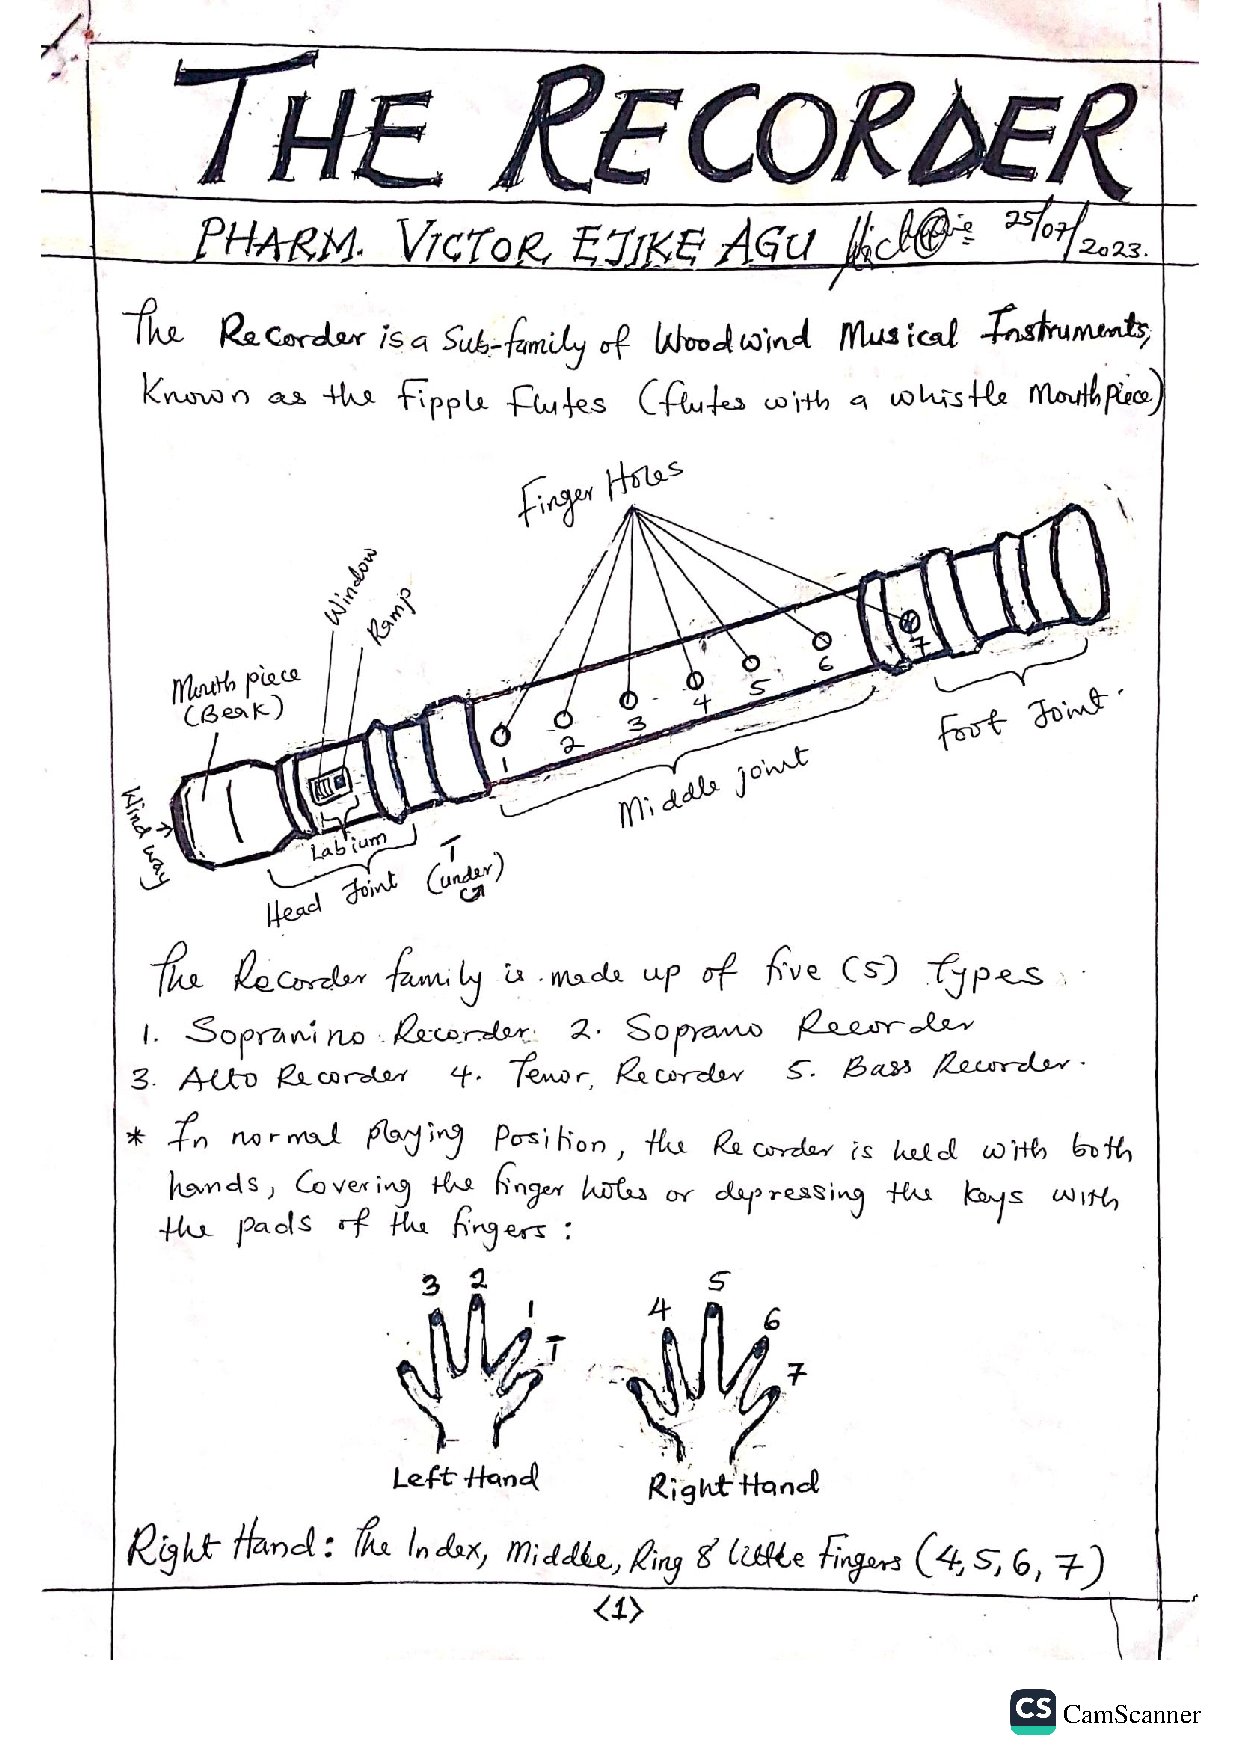 THE RECORDER
PHARM. VICTOR EJIKE AGU 25/07/2023.
The Recorder is a Sub-family of Woodwind Musical Instruments,
Known as the Fipple Flutes (flutes with a whistle Mouthpiece)
Finger Holes
Window
Ramp
Mouth piece
(Beak)
1 2 3 4 5 6 7
Foot Joint.
Middle joint
Wind way
Labium
Head Joint
T
(under)
The Recorder family is made up of five (5) types
1. Sopranino Recorder 2. Soprano Recorder
3. Alto Recorder 4. Tenor, Recorder 5. Bass Recorder.
* In normal playing Position, the Recorder is held with both
hands, Covering the finger holes or depressing the keys with
the pads of the fingers:
3 2 1 T
4 5 6 7
Left Hand
Right Hand
Right Hand: The Index, Middle, Ring & little Fingers (4, 5, 6, 7)
<1>
CS CamScanner